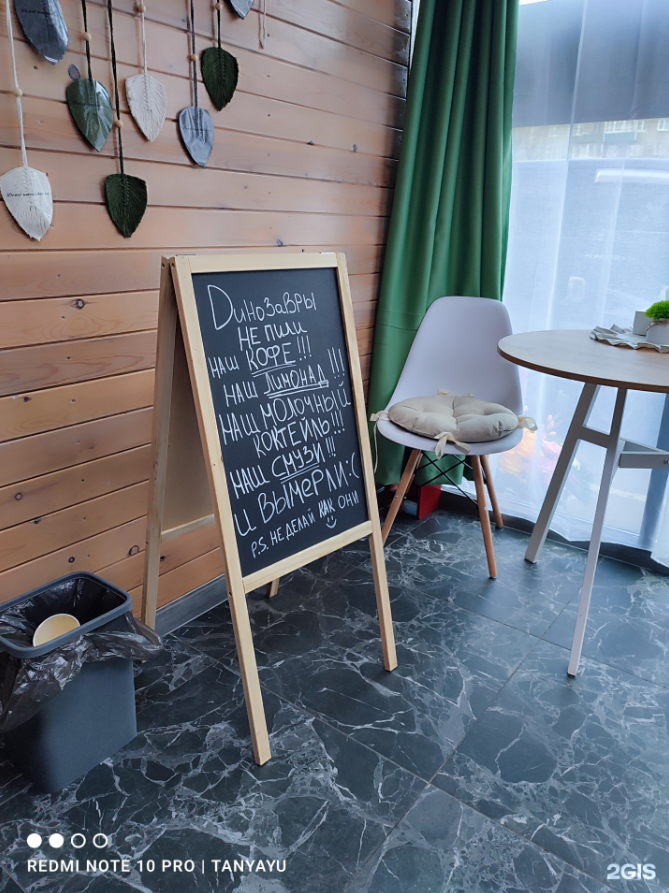 Динозавры
не пили
наш кофе!!!
наш лимонад!!!
наш молочный
коктейль!!!
наш смузи!!!
и вымерли:(
P.S. не делай как они
REDMI NOTE 10 PRO | TANYAYU
2GIS